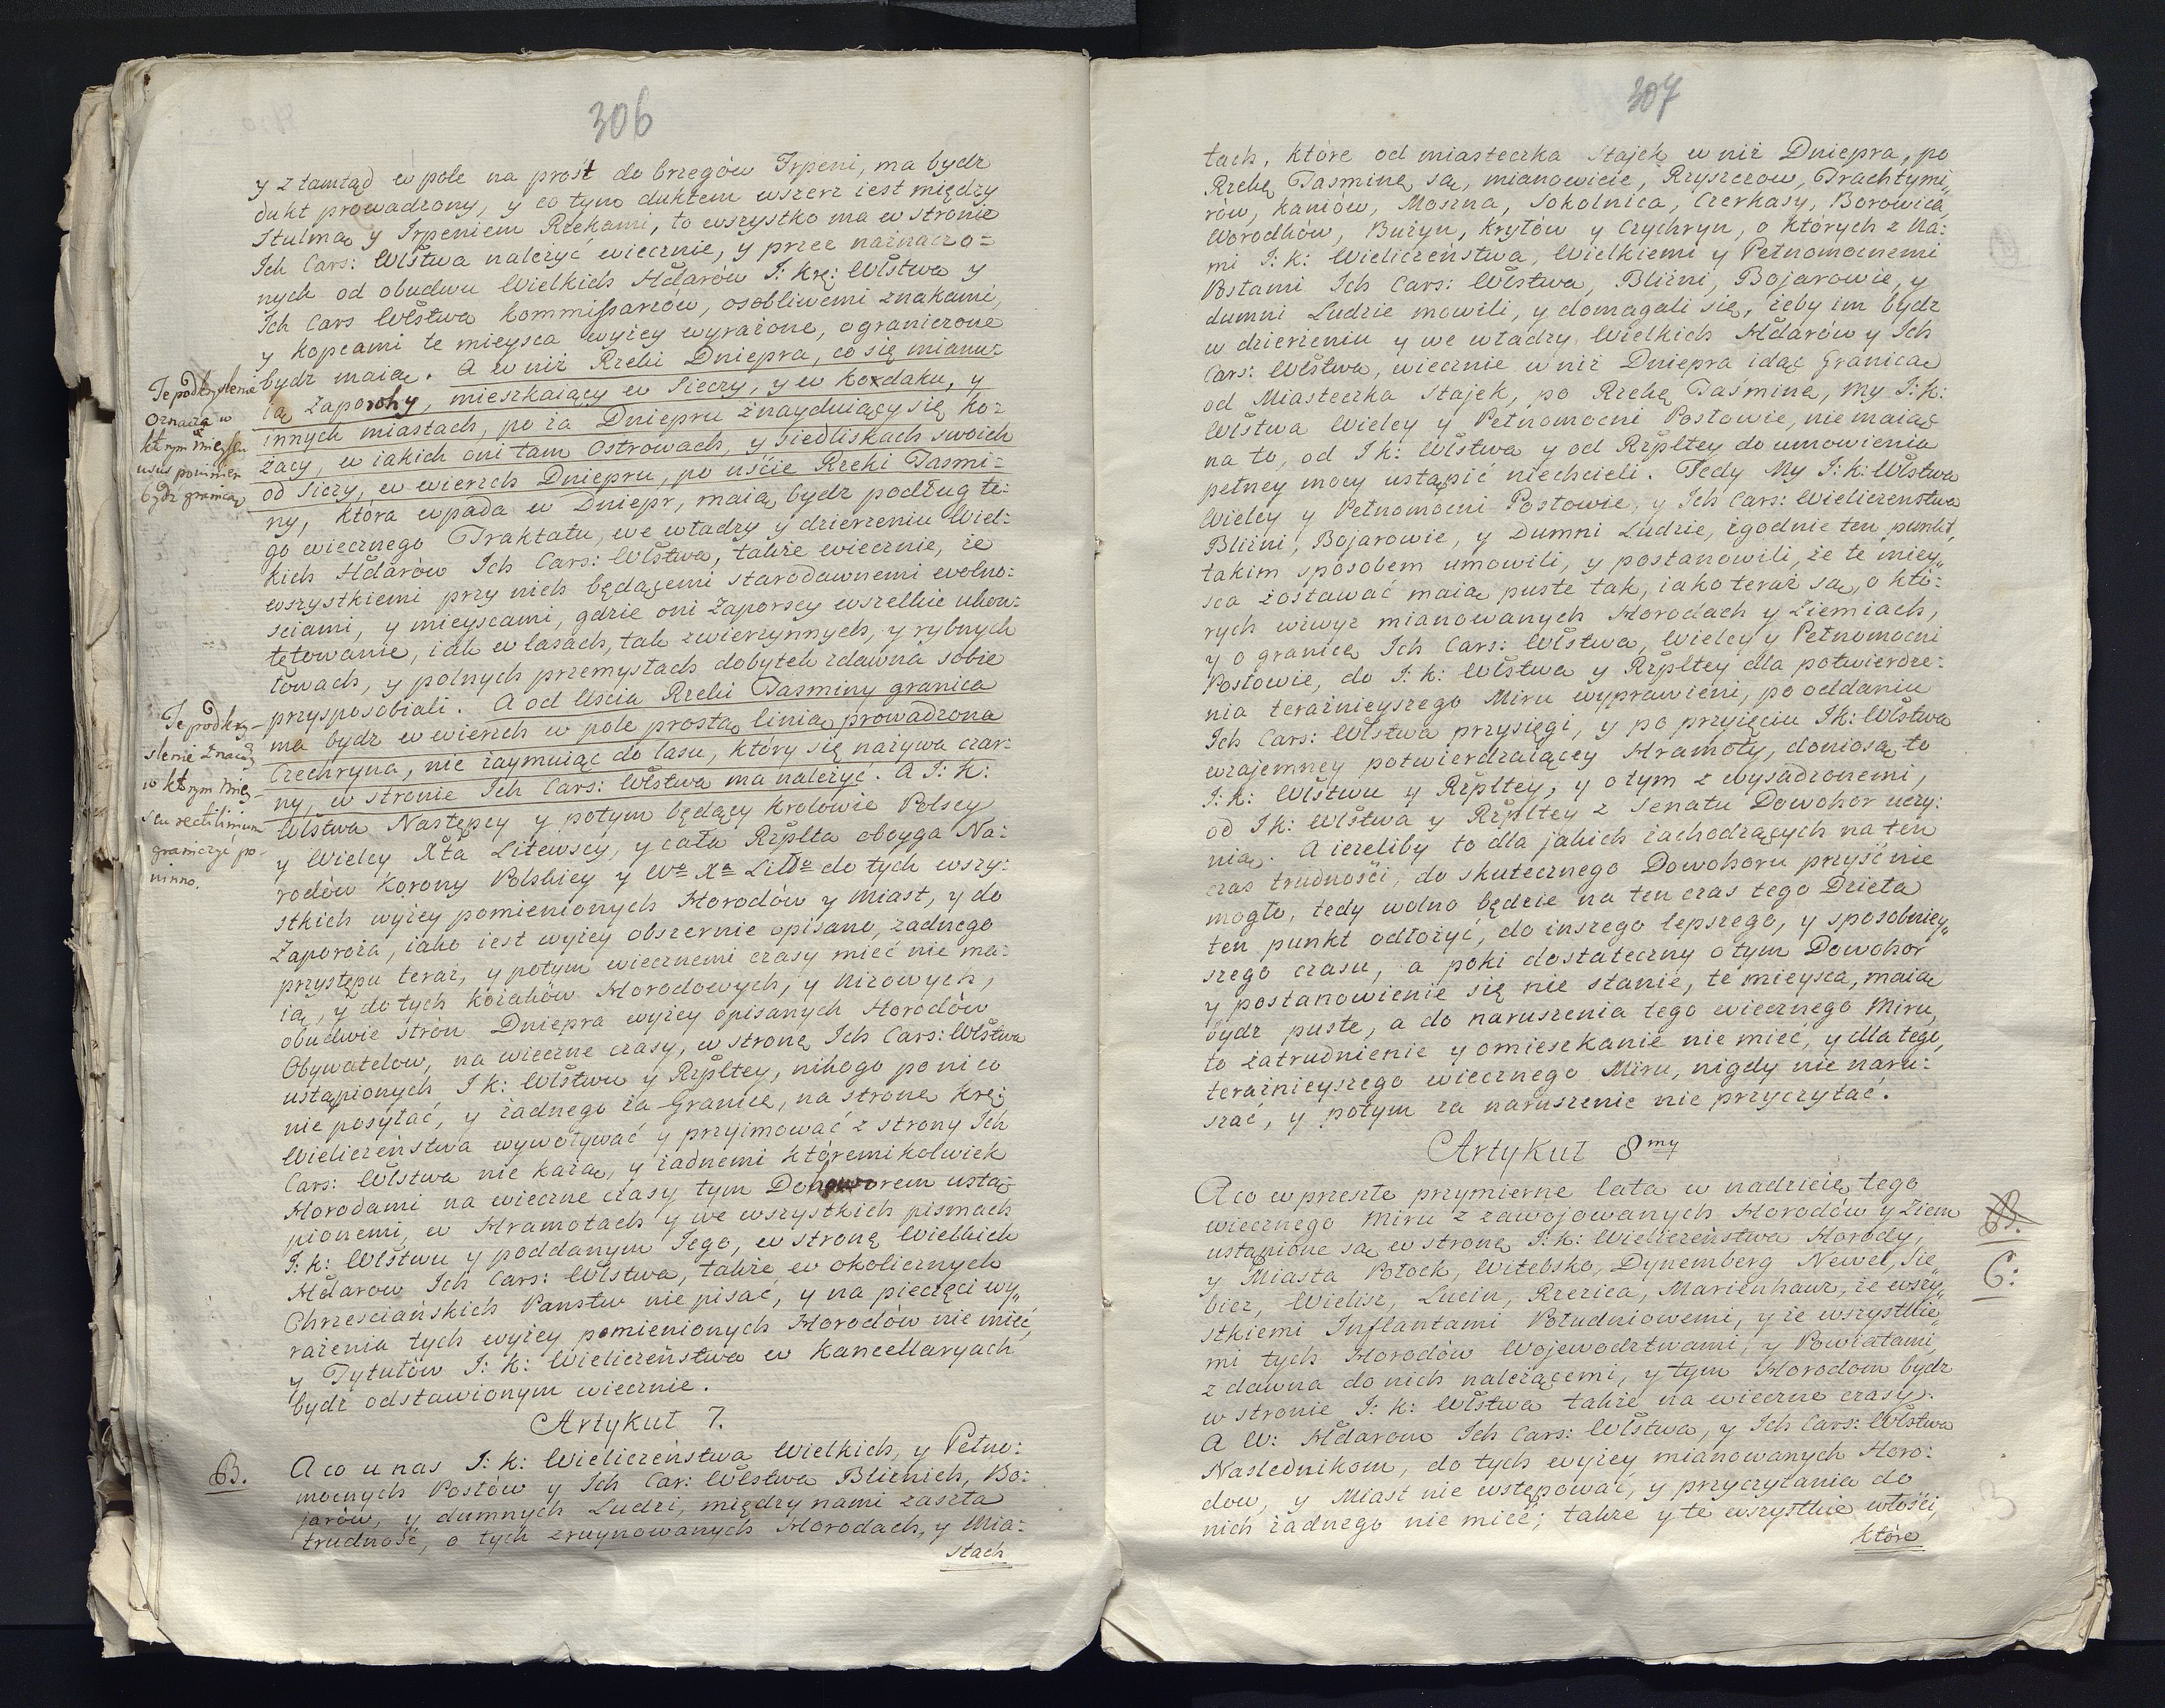 306
y ztamtąd w pole na prost do brzegów Irpeni, ma bydz
dukt prowadzony, y co tym duktem wszerz iest między
Stulmą y Irpeniem Rzekami, to wszystko ma w stronie
Ich Cars: Wlstwa należyć wiecznie, y przez naznaczo=
nych od obudwu Wielkich Hdarów I: Krs: Wlstwa y
Ich Cars Wlstwa Kommissarzów, osobliwemi znakami,
y kopcami te mieysca wyżey wyrażone, ograniczone
bydz maią. A w niż Rzeki Dniepra, co się mianu=
ią Zaporohy, mieszkaiący w Sieczy, y w Koxdaku, y
innych miastach, po za Dniepru znayduiący się Ko=
zacy, w iakich oni tam Ostrowach, y siedliskach swoich
od Siczy, w wierzch Dniepru, po uście Rzeki Tasmi=
ny, która wpada w Dniepr, maią bydz podług te:
go wiecznego Traktatu, we władzy y dzierzeniu Wiel:
kich Hdarów Ich Cars: Wlstwa, także wiecznie, ze
wszystkiemi przy nich będącemi starodawnemi wolno:
sciami, y mieyscami, gdzie oni Zaporscy wszelkie ukon:
tętowanie, iak w lasach, tak zwierzynnych, y rybnych
łowach, y polnych przemysłach dobytek zdawna sobie
przysposobiali. A od Uścia Rzeki Tasminy granica
ma bydz w wierzch w pole prostą linią prowadzona
Czechryna, nie zaymuiąc do lasu, który się nazywa czar:
ny, w stronie Ich Cars: Wlstwa ma należyć. A I: K:
Wlstwa Następcy y potym będący Krolowie Polscy
y Wielcy Xta Litewscy, y cała Rzplta oboyga Na:
rodów Korony Polskiey y Wo Xa Litto do tych wszy:
stkich wyżey pomienionych Horodów y Miast, y do
Zaporoża, iako iest wyżey obszernie opisano, żadnego
przystępu teraz, y potym wiecznemi czasy mieć nie ma:
ią, y do tych Kozaków Horodowych, y Nizowych,
obudwie strón Dniepra wyżey opisanych Horodów
Obywatelow, na wieczne czasy, w stronę Ich Cars: Wlstwa
ustąpionych, I K: Wlstwu y Rzpltey, nikogo po ni co
nie posyłać, y żadnego za Granicę, na stronę Kre:
Wieliczeństwa wywoływać y przyimować z strony Ich
Cars: Wlstwa nie każą, y żadnemi któremikolwiek
Horodami na wieczne czasy tym Dohoworem ustą
pionemi, w Hramotach y we wszystkich pismach
I: K: Wlstwu y poddanym Jego, w stronę Wielkich
Hdarow Ich Cars: Wlstwa, także w okolicznych
Chrzesciańskich Panstw nie pisać, y na pieczęci wy"
rażenia tych wyżey pomienionych Horodów nie mieć,
y Tytułów I: K: Wieliczeństwa w Kancellaryach
bydz odstawionym wiecznie.
Artykuł 7.
A co u nas I: K: Wieliczeństwa Wielkich, y Pełno:
mocnych Posłów y Ich Car: Wlstwa Blizkich, Bo:
jarów, y dumnych Ludzi, między nami zaszła
trudność, o tych zruynowanych Horodach, y Mia:
stach
Te podkryslenie
oznacza w
którym Mieyscu
usus powinien
bydz granicą
Te podkry-
slenie Znaczą
w którym Miey-
scu rectilinium
graniczyć po-
winno.
B.
307
tach, które od miasteczka Stajek w niz Dniepra, po
Rzekę Tasminę są, mianowicie, Rzyszczow, Trachtymi"
rów, Kaniów, Moszna, Sokolnica, Czerkasy, Borowica,
Worodków, Bużyn, Kryłów y Czychryn, o których z Na:
mi I: K: Wieliczeństwa, Wielkiemi y Pełnomocnemi
Posłami Ich Cars: Wlstwa, Blizni, Bojarowie, y
dumni Ludzie mowili, y domagali się, żeby im bydz
w dzierzeniu y we władzy Wielkich Hdarów y Ich
Cars: Wlstwa, wiecznie w niż Dniepra idąc Granicą
od Miasteczka Stajek, po Rzekę Tasminę, My I: K:
Wlstwa Wielcy y Pełnomocni Posłowie, nie maiąc
na to, od I K: Wlstwa y od Rzpltey do umowienia
pełney mocy ustąpić niechcieli. Tedy My I: K: Wlstwa
Wielcy y Pełnomocni Posłowie, y Ich Cars: Wieliczenstwa
Blizni, Bojarowie, y Dumni Ludzie, zgodnie ten punkt,
takim sposobem umowili, y postanowili, że te miey"
sca zostawać maią puste tak, iako teraz są, o któ:
rych wzwyz mianowanych Horodach y Ziemiach,
y o granicę Ich Cars: Wlstwa, Wielcy y Pełnomocni
Posłowie, do I: K: Wlstwa y Rzpltey dla potwierdze:
nia teraźnieyszego Miru wyprawieni, po oddaniu
Ich Cars: Wlstwa przysięgi, y po przyięciu I K: Wlstwa
wzajemney potwierdzaiącey Hramoty, doniosą to
I: K: Wlstwu y Rzpltey, y o tym z wysadzonemi,
od I K: Wlstwa y Rzpltey z Senatu Dowohor uczy:
nią. A ieżeliby to dla jakich zachodzących na ten
czas trudności, do skutecznego Dowohoru przyść nie
mogło, tedy wolno będzie na ten czas tego Dzieła
ten punkt odłożyć, do inszego lepszego, y sposobniey"
szego czasu, a poki dostateczny o tym Dowohor
y postanowienie się nie stanie, te mieysca, maią
bydz puste, a do naruszenia tego wiecznego Miru,
to zatrudnienie y omieszkanie nie mieć, y dla tego,
teraźnieyszego wiecznego Miru, nigdy nie naru:
szać, y potym za naruszenie nie przyczytać.
Artykuł 8my
A co w przeszłe przymierne lata w nadzieię tego
wiecznego Miru z zawojowanych Horodów y Ziem
ustąpione są w stronę I: K: Wieliczeństwa Horody,
y Miasta Połock, Witebsko, Dynemberg Newel, Sie"
bież, Wieliż, Lucin, Rzezica, Marienhauz, ze wszy"
stkiemi Inflantami Południowemi, y ze wszystkie"
mi tych Horodów Wojewodztwami, y Powiatami
z dawna do nich należącemi, y tym Horodom bydz
w stronie I: K: Wlstwa także na wieczne czasy.
A W: Hdarom Ich Cars: Wlstwa, y Ich Cars: Wlstwa
Naslednikom, do tych wyżey mianowanych Horo:
dow, y Miast nie wstępować, y przyczytania do
nich żadnego nie mieć; także y te wszystkie włości,
które
B.
C: